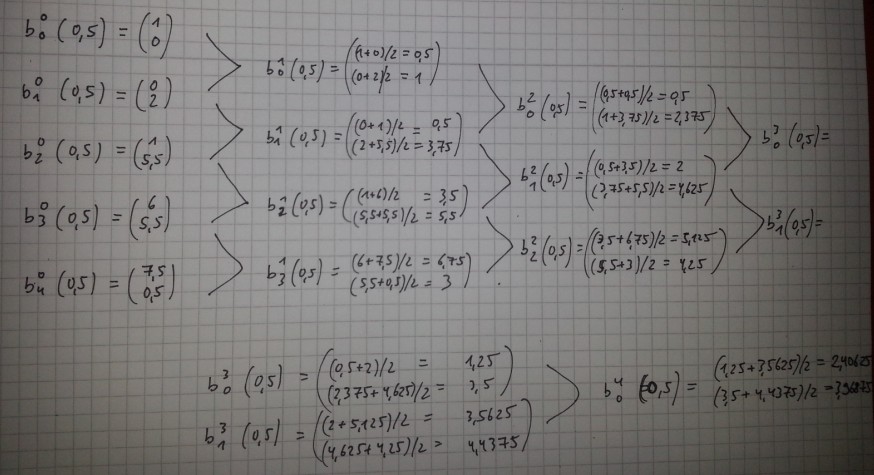 b₀⁰ (0,5) = (1 0)
b₁⁰ (0,5) = (0 2)
b₂⁰ (0,5) = (1 5,5)
b₃⁰ (0,5) = (6 5,5)
b₄⁰ (0,5) = (7,5 0,5)
b₀¹ (0,5) = ((1+0)/2 = 0,5
(0+2)/2 = 1)
b₁¹ (0,5) = ((0+1)/2 = 0,5
(2+5,5)/2 = 3,75)
b₂¹ (0,5) = ((1+6)/2 = 3,5
(5,5+5,5)/2 = 5,5)
b₃¹ (0,5) = ((6+7,5)/2 = 6,75
(5,5+0,5)/2 = 3)
b₀² (0,5) = ((0,5+0,5)/2 = 0,5
(1+3,75)/2 = 2,375)
b₁² (0,5) = ((0,5+3,5)/2 = 2
(3,75+5,5)/2 = 4,625)
b₂² (0,5) = ((3,5+6,75)/2 = 5,125
(5,5+3)/2 = 4,25)
b₀³ (0,5) =
b₁³ (0,5) =
b₀³ (0,5) = ((0,5+2)/2 = 1,25
(2,375+4,625)/2 = 3,5)
b₁³ (0,5) = ((2+5,125)/2 = 3,5625
(4,625+4,25)/2 = 4,4375)
b₀⁴ (0,5) = (1,25+3,5625)/2 = 2,40625
(3,5+4,4375)/2 = 3,96875